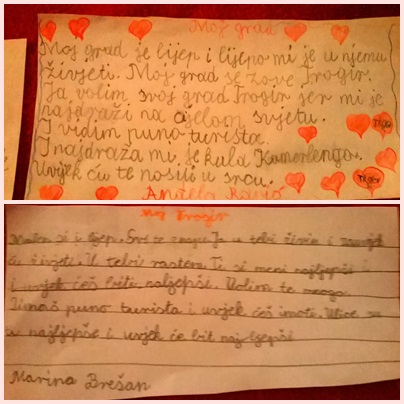 Moj grad
Moj grad je lijep i lijepo mi je u njemu
živjeti. Moj grad se zove Trogir.
Ja volim svoj grad Trogir jer mi je
najdraži na cijelom svijetu.
I vidim puno turista.
I najdraža mi je kula Kamerlengo.
Uvijek ću te nositi u srcu.
Moj Trogir
Malen si i lijep. Svi te znaju. Ja u tebi živim i
ću živjeti. U tebi rastem. Ti si meni najljepši i
i uvijek ćeš biti najljepši. Volim te mnogo.
Imaš puno turista i uvjek ćeš imati. Ulice su
ti najljepše i uvjek će bit najljepši
Marina Brešan